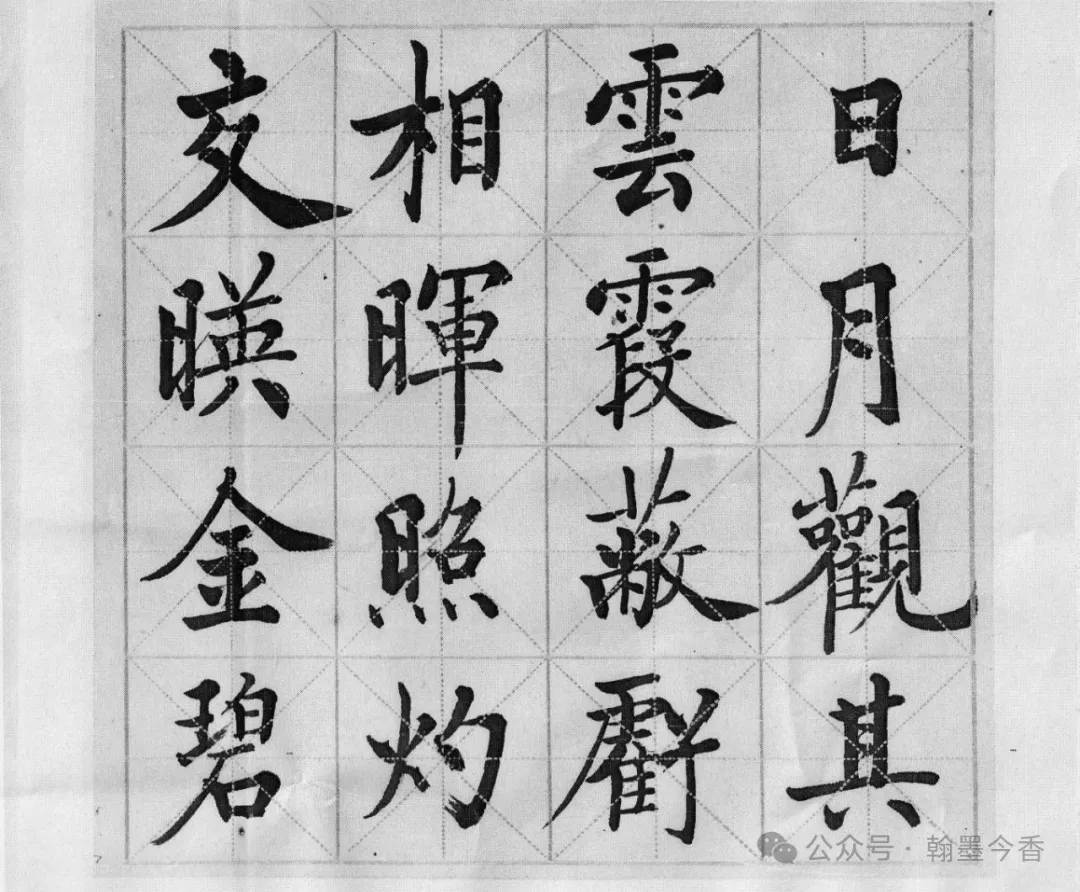 日月觀其
雲霞蔽虧
相暉照灼
交暎金碧
7
公众号·翰墨今香